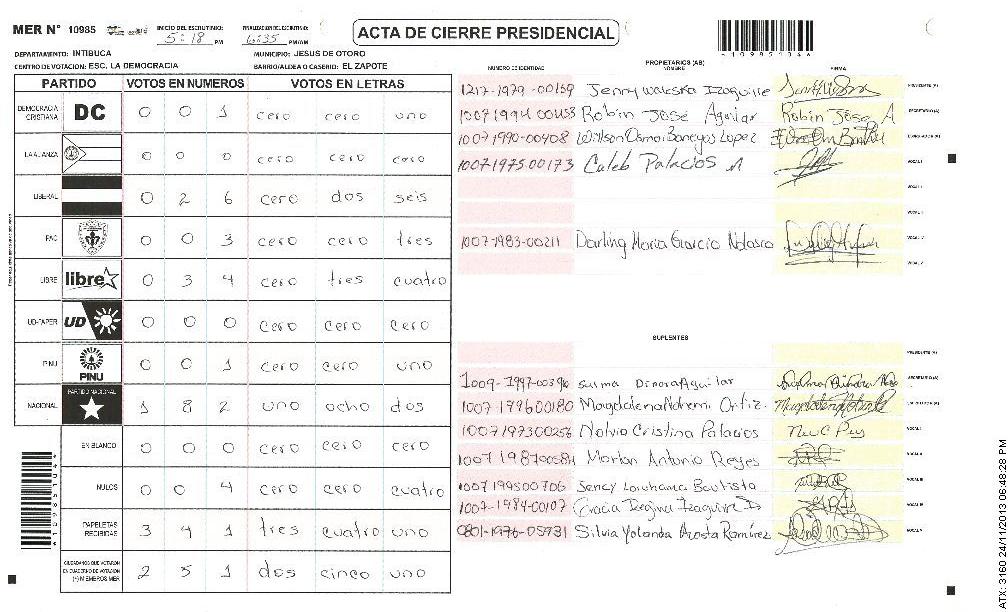 MER N° 10985 INICIO DEL ESCRUTINIO: 5:18 PM FINALIZACION DEL ESCRUTINIO: 6:35 PM/AM ACTA DE CIERRE PRESIDENCIAL
*109851044*
DEPARTAMENTO: INTIBUCA MUNICIPIO: JESUS DE OTORO
CENTRO DE VOTACION: ESC. LA DEMOCRACIA BARRIO/ALDEA O CASERIO: EL ZAPOTE
PARTIDO VOTOS EN NUMEROS VOTOS EN LETRAS
DEMOCRACIA CRISTIANA DC 0 0 1 cero cero uno
LA ALIANZA 0 0 0 cero cero cero
LIBERAL 0 2 6 cero dos seis
PAC 0 0 3 cero cero tres
LIBRE libre 0 3 4 cero tres cuatro
UD-FAPER UD 0 0 0 cero cero cero
PINU PINU 0 0 1 cero cero uno
NACIONAL PARTIDO NACIONAL 1 8 2 uno ocho dos
EN BLANCO 0 0 0 cero cero cero
NULOS 0 0 4 cero cero cuatro
PAPELETAS RECIBIDAS 3 4 1 tres cuatro uno
CIUDADANOS QUE VOTARON EN CUADERNO DE VOTACION (+) MIEMBROS MER 2 5 1 dos cinco uno
*109851044*
NUMERO DE IDENTIDAD PROPIETARIOS (AS) NOMBRE FIRMA
1217-1979-00159 Jenny Waleska Izaguirre PRESIDENTE (A)
1007 1994 00453 Robin Jose Aguilar Robin Jose A SECRETARIO (A)
1007 1990-00408 Wilson Osmar Banegas Lopez ESCRUTADOR (A)
1007 1975 00173 Caleb Palacios M VOCAL I
1007-1983-00211 Darling Maria Garcia Nolasco VOCAL V
SUPLENTES
PRESIDENTE (A)
Selma Dinora Aguilar SECRETARIO (A)
1007-199600180 Magdalena Nohemi Ortiz. ESCRUTADOR (A)
1007197300256 Nolvia Cristina Palacios VOCAL I
1007 198700584 Marlon Antonio Reyes
1007 199500706 Sency Lorohana Bautista
1007-1984-00107 Gracia Regina Izaguirre
0801-1976-05931 Silvia Yolanda Acosta Ramírez
ATX: 3160 24/11/2013 06:48:28 PM